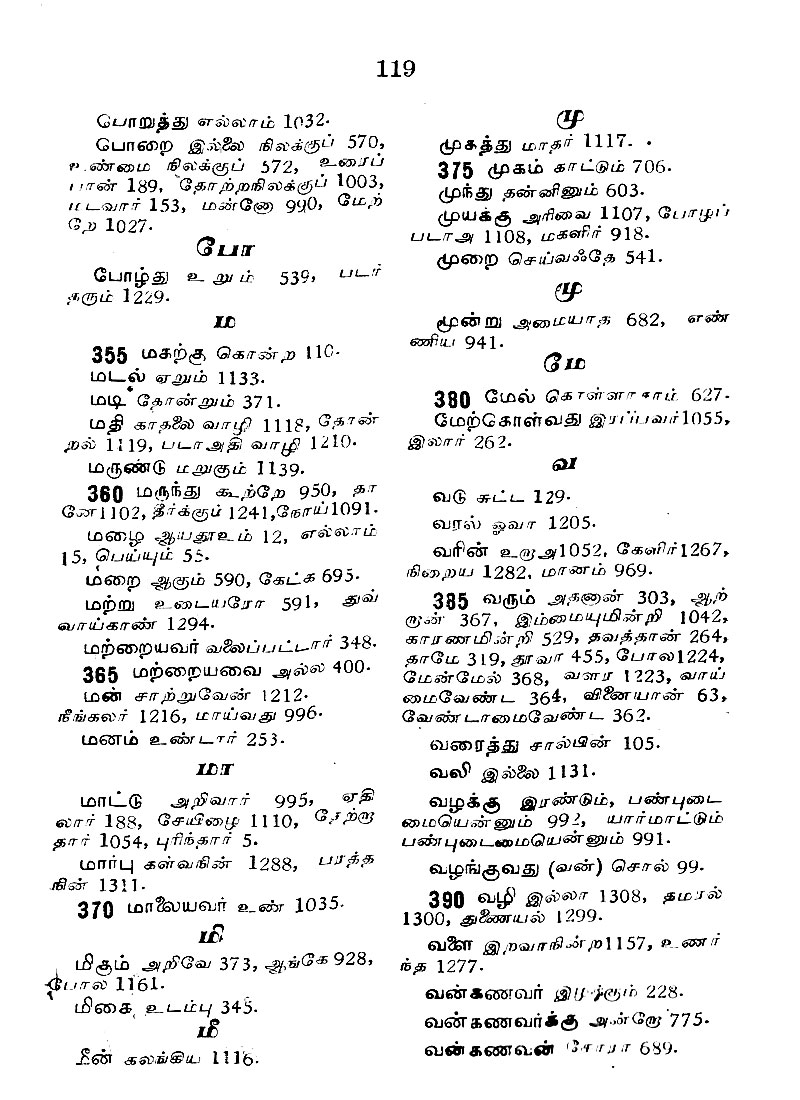 119
பொறுத்து எல்லாம் 1032.
பொறை இல்லை நிலக்குப் 570,
உண்மை நிலக்குப் 572, உரைப்
பான் 189, தோற்றநிலக்குப் 1003,
மடவார் 153, மன்னோ 990, மேற்
றே 1027.
போ
போழ்து உறும் 539, படர்
தரும் 1229.
ம
355 மகற்கு கொன்ற 110.
மடல் ஏறும் 1133.
மடி தோன்றும் 371.
மதி காதலை வாழி 1118, தோன்
றல் 1119, படாஅதி வாழி 1210.
மருண்டு மறுகும் 1139.
360 மருந்து கூற்றே 950, தா
னே1102, தீர்க்கும் 1241,நோய்1091.
மழை ஆயதூஉம் 12, எல்லாம்
15, பெய்யும் 55.
மறை ஆகும் 590, கேட்க 695.
மற்று உடையரோ 591, துவ்
வாய்காண் 1294.
மற்றையவர் வலைப்பட்டார் 348.
365 மற்றையவை அல்ல 400.
மன் சாற்றுவேன் 1212.
நீங்கலர் 1216, மாய்வது 996.
மனம் உண்டார் 253.
மா
மாட்டு அறிவார் 995, ஏதி
லார் 188, சேயிழை 1110, சேற்று
தார் 1054, புரிந்தார் 5.
மார்பு கள்வநின் 1288, பரத்த
நின் 1311.
370 மாலையவர் உண் 1035.
மி
மிகும் அறிவே 373, ஆங்கே 928,
போல 1161.
மிகை உடம்பு 345.
மீ
மீன் கலங்கிய 1116.
மு
முகத்து மாதர் 1117.
375 முகம் காட்டும் 706.
முந்து தன்னினும் 603.
முயக்கு அரிவை 1107, போழப்
படாஅ 1108, மகளிர் 918.
முறை செய்வஃதே 541.
மூ
மூன்று அமையாத 682, எண்
ணிய 941.
மே
380 மேல் கொள்ளாகாம் 627.
மேற்கொள்வது இரப்பவர்1055,
இலார் 262.
வ
வடு சுட்ட 129.
வரல் ஓவா 1205.
வரின் உருஅ1052, கேளிர்1267,
நிறைய 1282, மானம் 969.
385 வரும் அதனான் 303, ஆற்
றூன் 367, இம்மையுமின்றி 1042,
காரணமின்றி 529, தவத்தான் 264,
தாமே 319, தூவா 455, போல1224,
மேன்மேல் 368, வளர 1223, வாய்
மைவேண்ட 364, வினையான் 63,
வேண்டாமைவேண்ட 362.
வரைத்து சால்பின் 105.
வலி இல்லை 1131.
வழக்கு இரண்டும், பண்புடை
மையென்னும் 992, யார்மாட்டும்
பண்புடைமையென்னும் 991.
வழங்குவது (வன்) சொல் 99.
390 வழி இல்லா 1308, தமரல்
1300, துணையல் 1299.
வளை இறவாநின்ற1157, உணர்
ந்த 1277.
வன்கணவர் 228.
வன்கணவர்க்கு அன்றே 775.
வன்கணவன் சோரா 689.